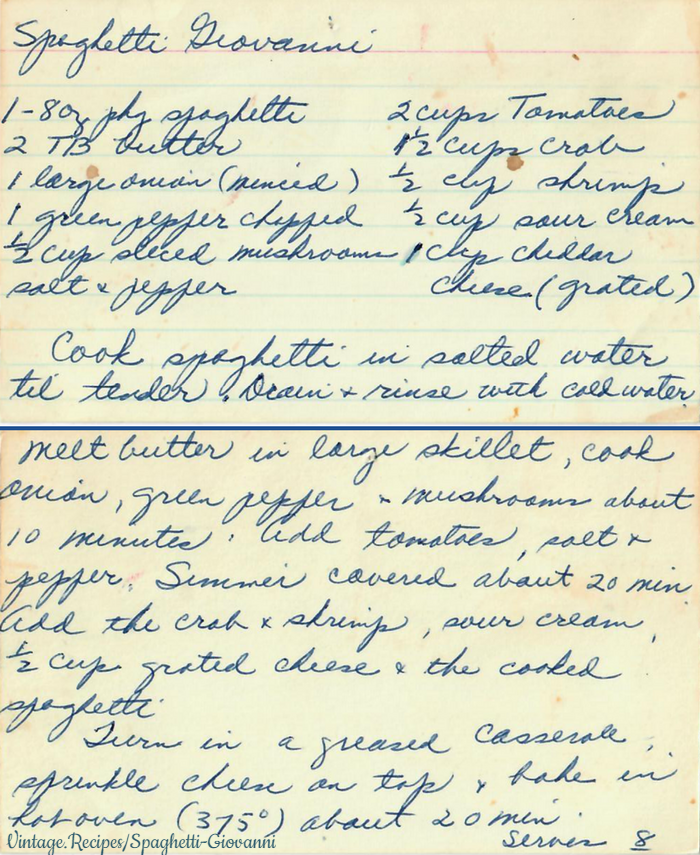 Spaghetti Giovanni
1-8oz pkg spaghetti
2 TB butter
1 large onion (minced)
1 green pepper chopped
½ cup sliced mushrooms
salt & pepper
2 cups Tomatoes
1½ cups crab
½ cup shrimp
½ cup sour cream
1 cup cheddar
cheese. (grated)
Cook spaghetti in salted water
til tender. Drain & rinse with cold water.
Melt butter in large skillet, cook
onion, green pepper & mushrooms about
10 minutes. Add tomatoes, salt &
pepper. Simmer covered about 20 min.
Add the crab & shrimp, sour cream,
½ cup grated cheese & the cooked
spaghetti
Turn in a greased casserole,
sprinkle cheese on top & bake in
hot oven (375°) about 20 min.
Serves 8
Vintage.Recipes/Spaghetti-Giovanni